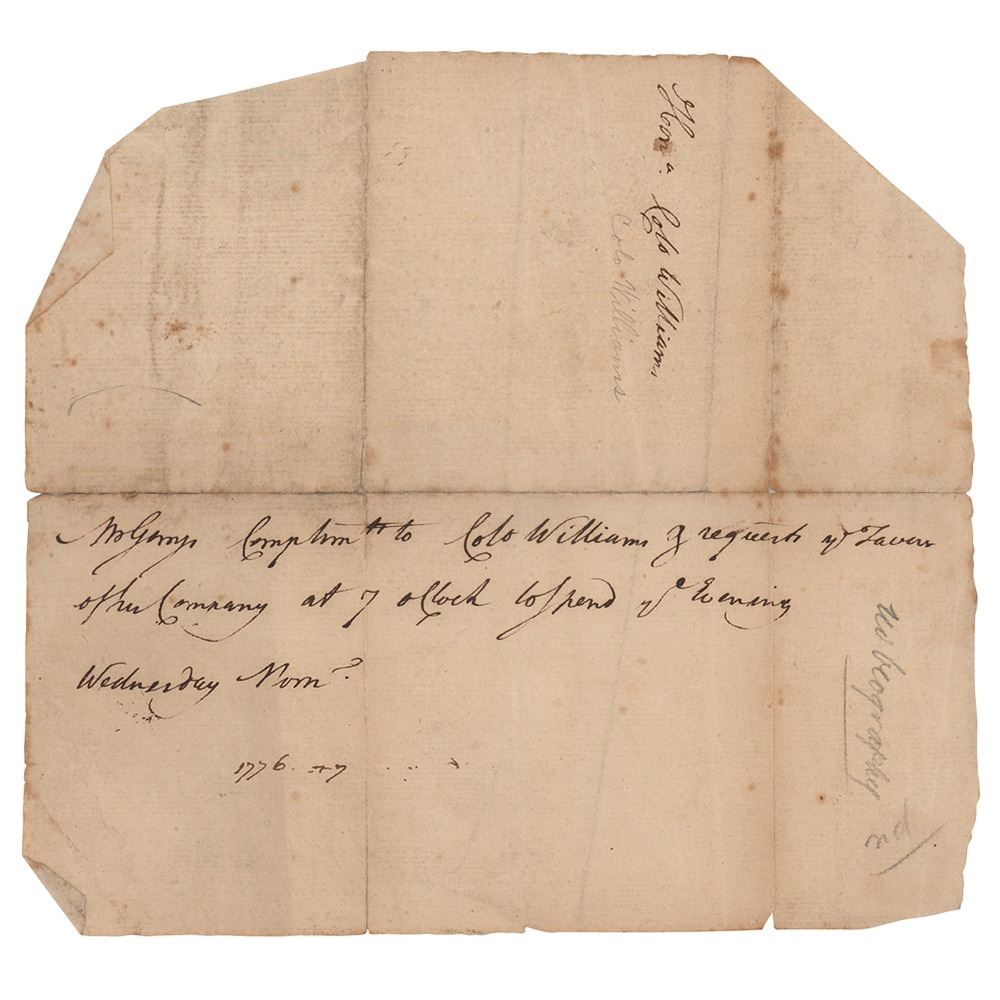 Hon.ª Colo Williams
Colo Williams
Mr Gerrys Complimts to Colo Williams & requests ye Favour
of his Company at 7 oClock to spend ye Evening
Wednesday Morng
1776